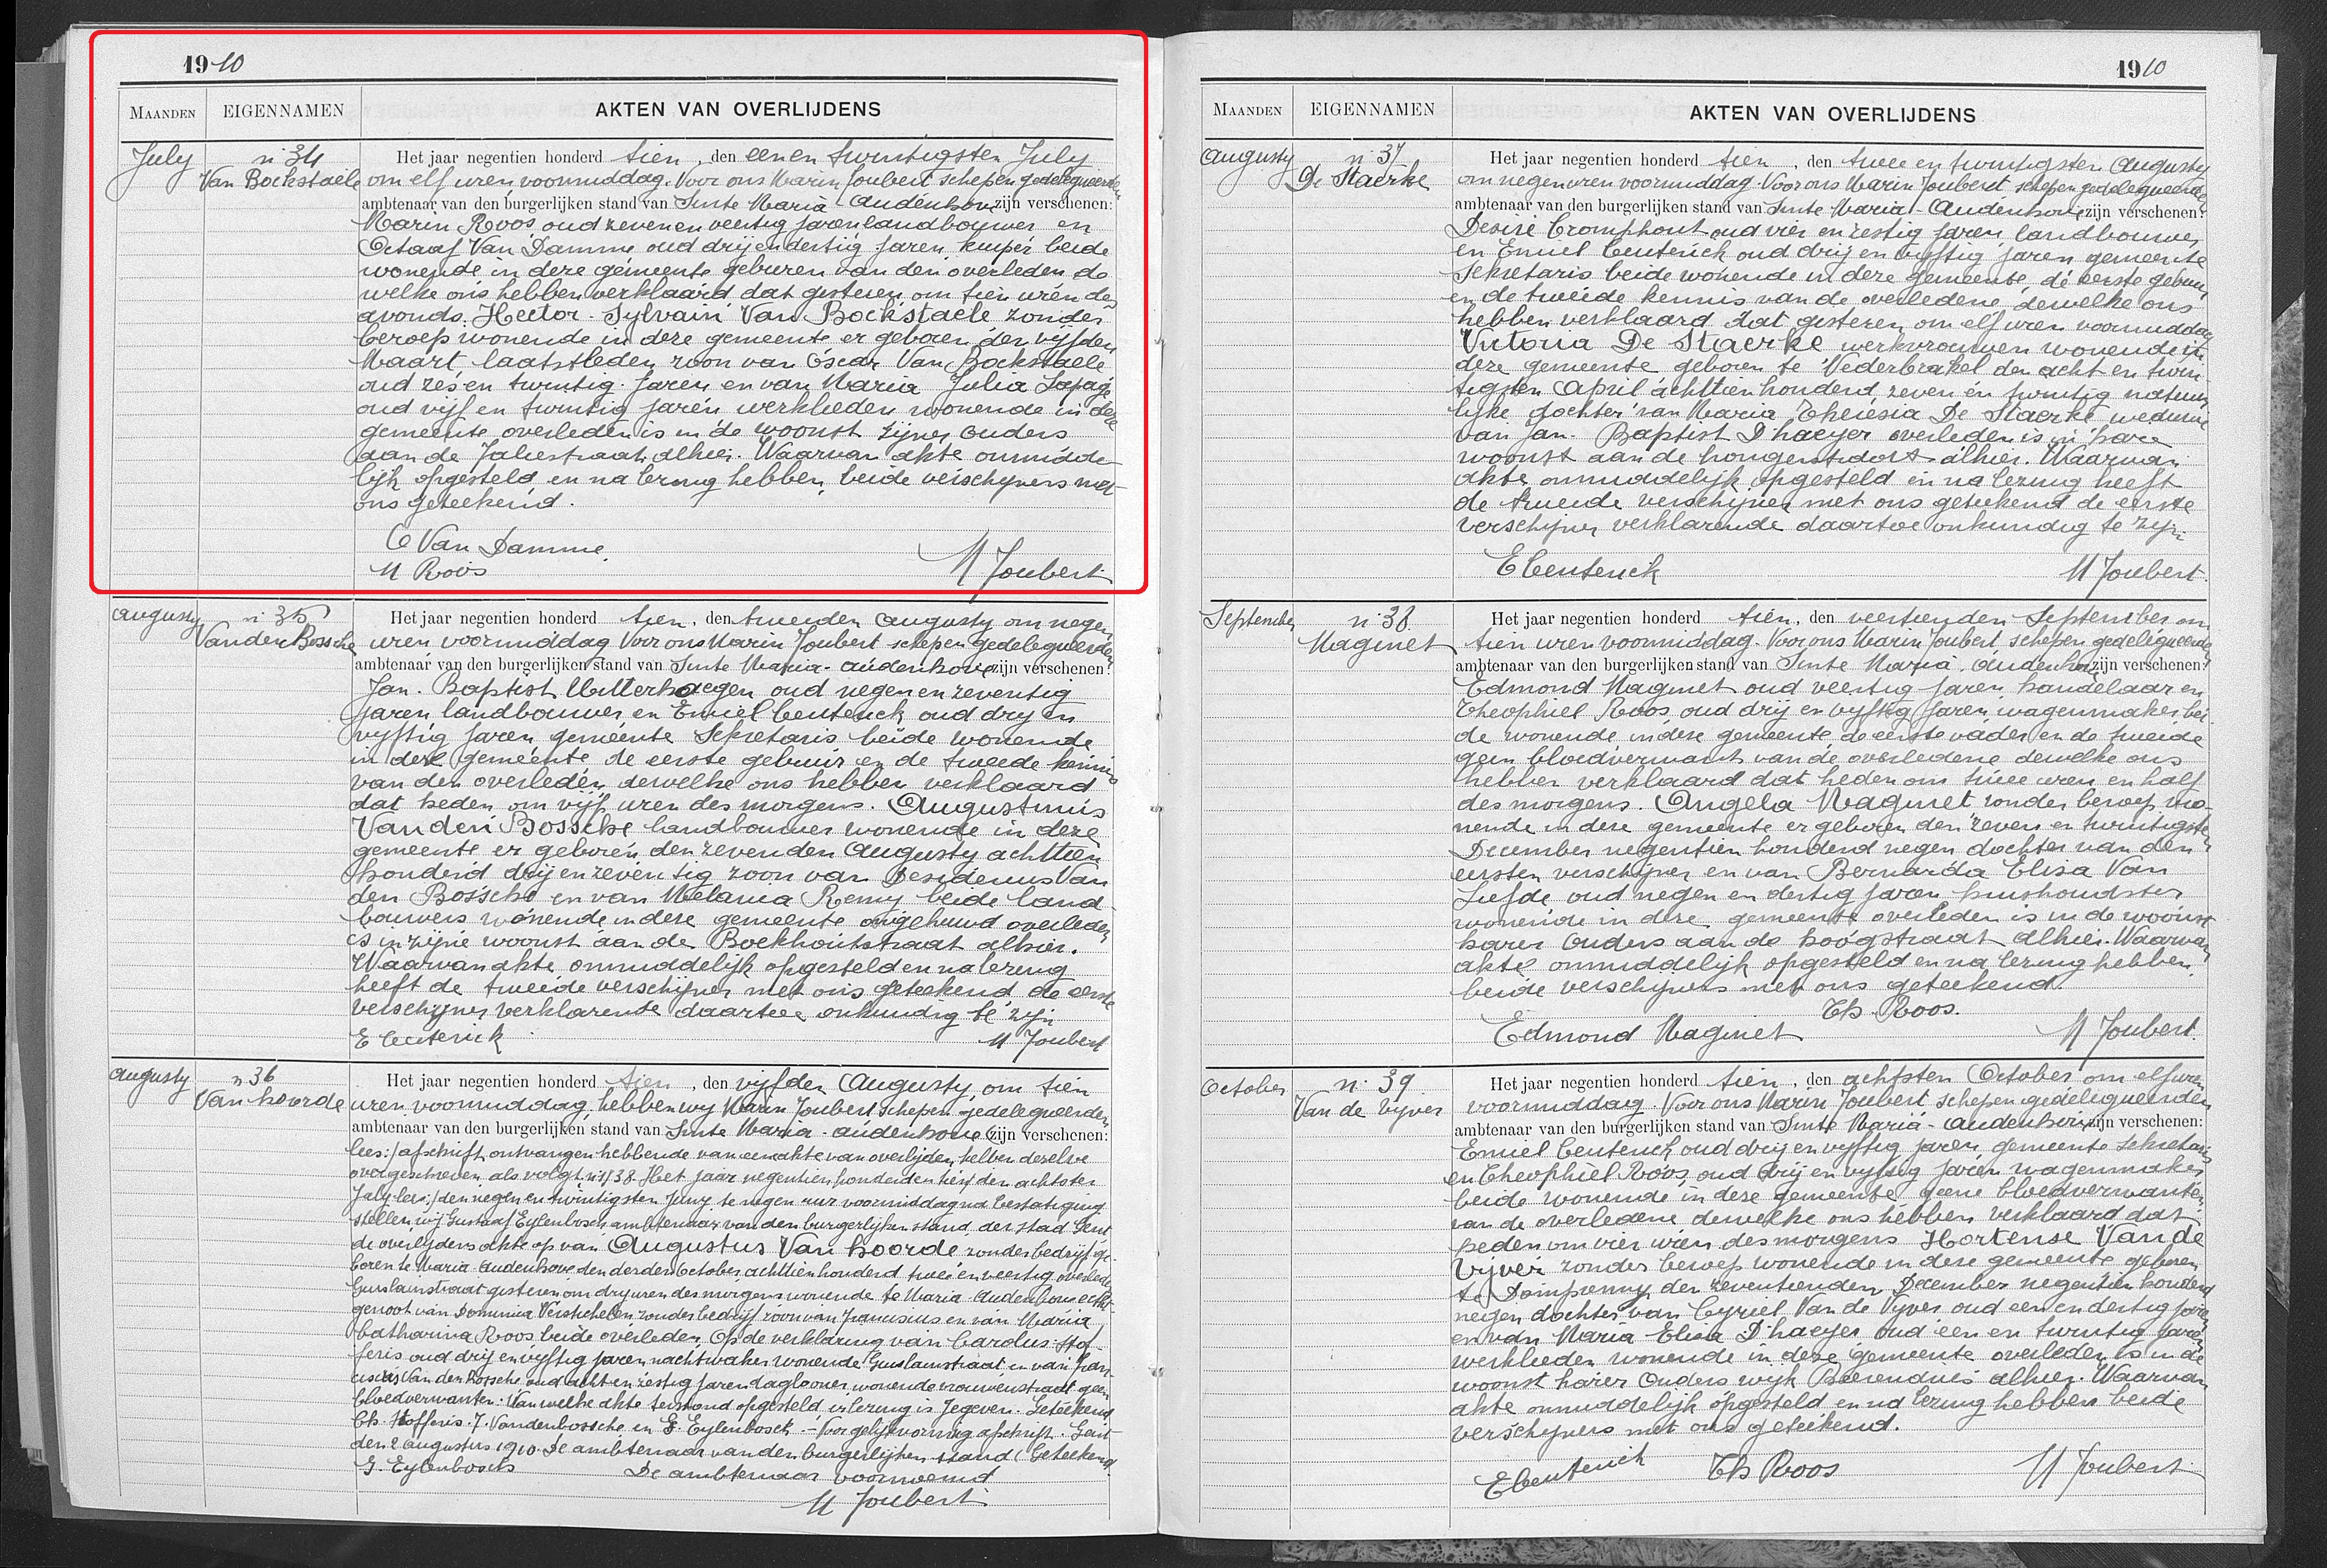 1910
MAANDEN EIGENNAMEN AKTEN VAN OVERLIJDENS
July
n° 34
Van Bockstaele
Het jaar negentien honderd tien, den eenen twintigsten July
om elf uren voormiddag. Voor ons Marin Joubert schepen gedelegueerden
ambtenaar van den burgerlijken stand van Sinte Maria-Audenhove zijn verschenen:
Marin Roos, oud zeven en veertig jaren landbouwer en
Octaaf Van Damme oud drij en dertig jaren, kuiper beide
wonende in deze gemeente geburen van den overleden de
welke ons hebben verklaard dat gisteren om tien uren des
avonds. Hector-Sylvain Van Bockstaele zonder
beroep wonende in deze gemeente er geboren den vijfden
Maart laatstleden zoon van Oscar Van Bockstaele
oud zes en twintig jaren en van Maria Julia Lepage
oud vijf en twintig jaren werklieden wonende in deze
gemeente overleden is in de woonst zijner ouders
aan de alhier. Waarvan akte onmidde-
lijk opgesteld en na lezing hebben beide verschijners met
ons geteekend.
O Van Damme
M Roos
M Joubert
Augusty
n° 35
Van den Bossche
Het jaar negentien honderd tien, den tweeden Augusty om negen
uren voormiddag Voor ons Marin Joubert schepen gedelegueerden
ambtenaar van den burgerlijken stand van Sinte Maria-Audenhove zijn verschenen:
Jan-Baptist Uitterhaegen oud negen en zeventig
jaren landbouwer en Emiel Ceuterick oud dry en
vyftig jaren gemeente Sekretaris beide wonende
in deze gemeente de eerste gebuur en de tweede kennis
van den overleden, dewelke ons hebben verklaard
dat heden om vijf uren des morgens. Augustinus
Van den Bossche landbouwer wonende in deze
gemeente er geboren den zevenden Augusty achttien
honderd drij en zeventig zoon van Desiderius Van
den Bossche en van Melania Remy beide land-
bouwers wonende in deze gemeente ongehuwd overleden
is in zijne woonst aan de Boekhoutstraat alhier.
Waarvan akte onmiddelijk opgesteld en na lezing
heeft de tweede verschijner met ons geteekend de eerste
verschijner verklarende daartoe onkundig te zijn
E Ceuterick
M Joubert
Augusty
n° 36
Van hoorde
Het jaar negentien honderd tien, den vijfden Augusty, om tien
uren voormiddag, hebben wy Marin Joubert schepen gedelegueerden
ambtenaar van den burgerlijken stand van Sinte Maria-Audenhove (zijn verschenen:
lees:) afschrift ontvangen hebbende van eene akte van overlijden, hebben dezelve
overgeschreven als volgt: n° 1138. Het jaar negentien honderd en tien den achtsten
July lees:) den negen en twintigsten Juny te negen uur voormiddag na bestatiging
stellen wij Gustaaf Eylenbosch ambtenaar van den burgerlijken stand, der stad Gent
de overlijdens akte op van Augustus Van hoorde zonder bedrijf, ge-
boren te Maria-Audenhove den derden October achttien honderd twee en veertig overleden
Guislainstraat gisteren om drij uren des morgens wonende te Maria-Audenhove echt-
genoot van Dominica Verstichelen zonder bedrijf zoon van Franciscus en van Maria
Catharina Roos beide overleden. Op de verklaring van Carolus Hof-
feris oud drij en vyftig jaren nachtwaker wonende Guislainstraat en van Fran-
ciscus Van den Bossche oud acht en zestig jaren daglooner, wonende vrouwenstraat geen
bloedverwanten. Van welke akte terstond opgesteld, er lezing is gegeven. Geteekend
Ch. Hofferis. F. Vandenbossche en G. Eylenbosch. - Voor gelijkvormig afschrift. Gent
den 2 augustus 1910. De ambtenaar van den burgerlijken stand (Geteekend
G. Eylenbosch De ambtenaar voornoemd
M Joubert
1910
MAANDEN EIGENNAMEN AKTEN VAN OVERLIJDENS
Augusty
n° 37
De Staerke
Het jaar negentien honderd tien, den twee en twintigsten Augusty
om negen uren voormiddag. Voor ons Marin Joubert schepen gedelegueerden
ambtenaar van den burgerlijken stand van Sinte Maria-Audenhove zijn verschenen:
Desiré Cromphout oud vier en zestig jaren, landbouwer
en Emiel Ceuterick oud drij en vyftig jaren gemeente
Sekretaris beide wonende in deze gemeente, de eerste gebuur
en de tweede kennis van de overledene dewelke ons
hebben verklaard dat gisteren om elf uren voormiddag
Victoria De Staerke werkvrouwe wonende in
deze gemeente geboren te Nederbrakel den acht en twin-
tigsten April achttien honderd zeven en twintig natuur-
lijke dochter van Maria Theresia De Staerke weduwe
van Jan-Baptist D'haeyer overleden is in hare
woonst aan de alhier. Waarvan
akte onmiddelijk opgesteld en na lezing heeft
de tweede verschijner met ons geteekend de eerste
verschijner verklarende daartoe onkundig te zijn
E Ceuterick
M Joubert
September
n° 38
Maginet
Het jaar negentien honderd tien, den veertienden September om
tien uren voormiddag. Voor ons Marin Joubert, schepen gedelegueerden
ambtenaar van den burgerlijken stand van Sinte Maria-Audenhove zijn verschenen:
Edmond Maginet oud veertig jaren handelaar en
Theophiel Roos oud drij en vyftig jaren wagenmaker bei-
de wonende in deze gemeente de eerste vader en de tweede
geen bloedverwant van de overledene dewelke ons
hebben verklaard dat heden om twee uren en half
des morgens. Angela Maginet zonder beroep wo-
nende in deze gemeente er geboren den zeven en twintigsten
December negentien honderd negen dochter van den
eersten verschijner en van Bernarda Elisa Van
Liefde oud negen en dertig jaren huishoudster
wonende in deze gemeente overleden is in de woonst
harer ouders aan de hoogstraat alhier. Waarvan
akte onmiddelijk opgesteld en na lezing hebben
beide verschijners met ons geteekend.
Th. Roos.
Edmond Maginet
M Joubert
October
n° 39
Van de Vyver
Het jaar negentien honderd tien, den achtsten October om elf uren
voormiddag. Voor ons Marin Joubert schepen gedelegueerden
ambtenaar van den burgerlijken stand van Sinte Maria-Audenhove zijn verschenen:
Emiel Ceuterick oud drij en vyftig jaren, gemeente Sekretaris
en Theophiel Roos, oud drij en vyftig jaren wagenmaker
beide wonende in deze gemeente geene bloedverwanten
van de overledene dewelke ons hebben verklaard dat
heden om vier uren des morgens Hortense Van de
Vyver zonder beroep wonende in deze gemeente geboren
te Dompremy den zeventienden December negentien honderd
negen dochter van Cyriel Van de Vyver oud een en dertig jaren
en van Maria-Elisa D'haeyer oud een en twintig jaren
werklieden wonende in deze gemeente overleden is in de
woonst harer ouders wijk alhier. Waarvan
akte onmiddelijk opgesteld en na lezing hebben beide
verschijners met ons geteekend.
E Ceuterick
Th Roos
M Joubert